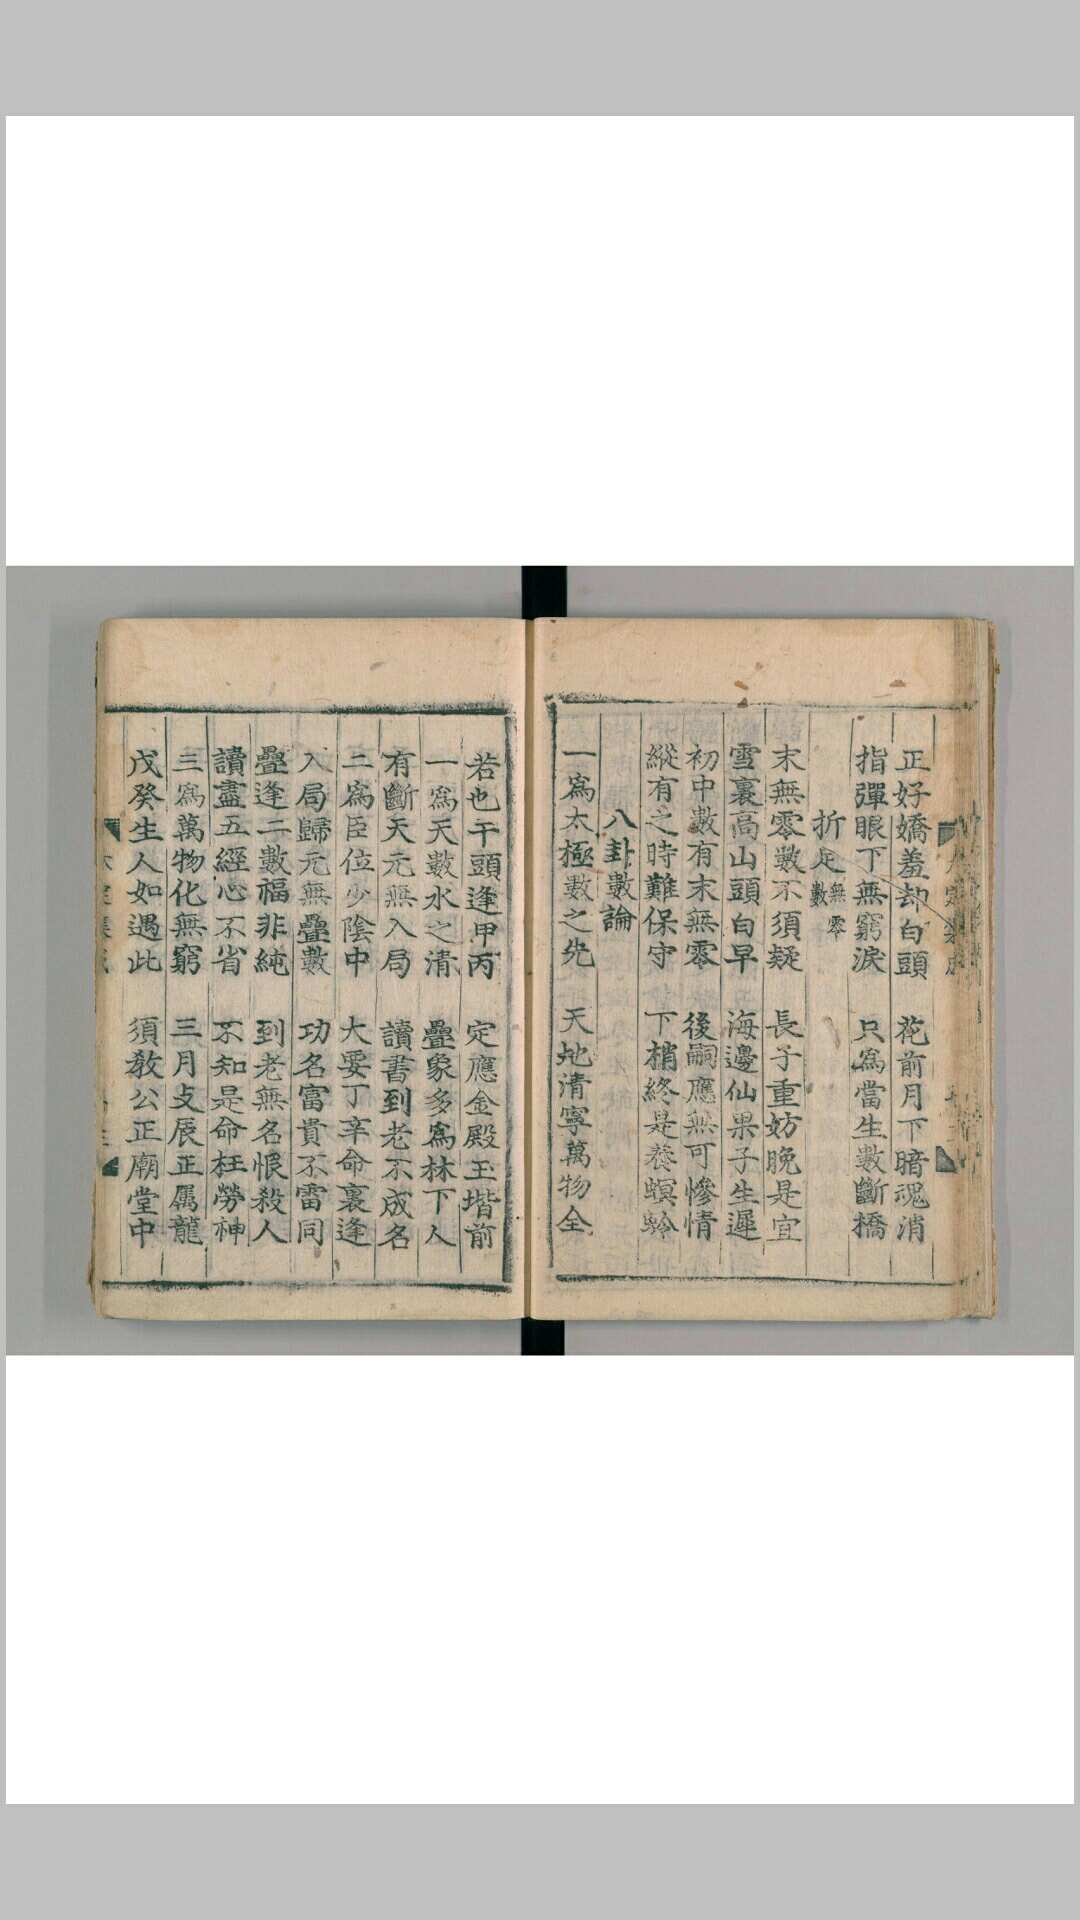 正好嬌羞却白頭　花前月下暗魂消
指彈眼下無窮淚　只爲當生數斷橋
折足 無零數
末無零數不須疑　長子重妨晚是宜
雪裏高山頭白早　海邊仙果子生遲
初中數有末無零　後嗣應無可慘情
縱有之時難保守　下梢終是養螟蛉
八卦數論
一爲太極數之先　天地清寧萬物全
若也干頭逢甲丙　定應金殿玉堦前
一爲天數水之清　疊象多爲林下人
有斷天元無入局　讀書到老不成名
二爲臣位少陰中　大要丁辛命裏逢
入局歸元無疊數　功名富貴不雷同
疊逢二數福非純　到老無名恨殺人
讀盡五經心不省　不知是命枉勞神
三爲萬物化無窮　三月支辰正屬龍
戊癸生人如遇此　須教公正廟堂中